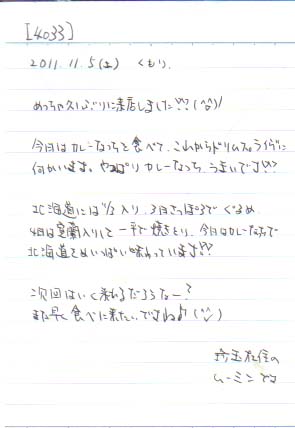 [4033]
2011.11.5(土) くもり.
めっちゃ久しぶりに来店しました!!(^o^)/
今日はカレーなっちを食べて、これからドリカムのライブに
向かいます。やっぱりカレーなっち、うまいです!!
北海道には1/3入り、3日さっぽろでぐるめ、
4日は室蘭入りして一平で焼きとり、今日はカレーなっちで
北海道をめいっぱい味わっています!!
次回はいく来れるだろうなー?
また早く食べに来たいですね♪(^^)
埼玉在住の
ムーミンです